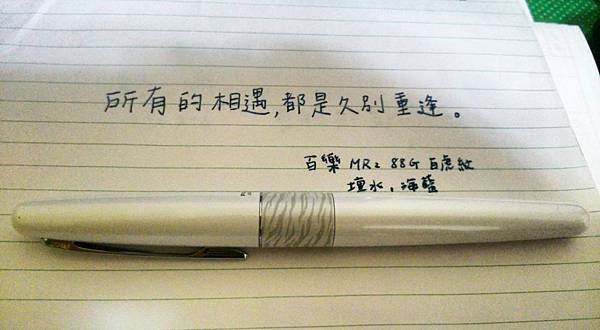 所有的相遇,都是久別重逢。
百樂 MR2 88G 白虎紋
壇水,海藍